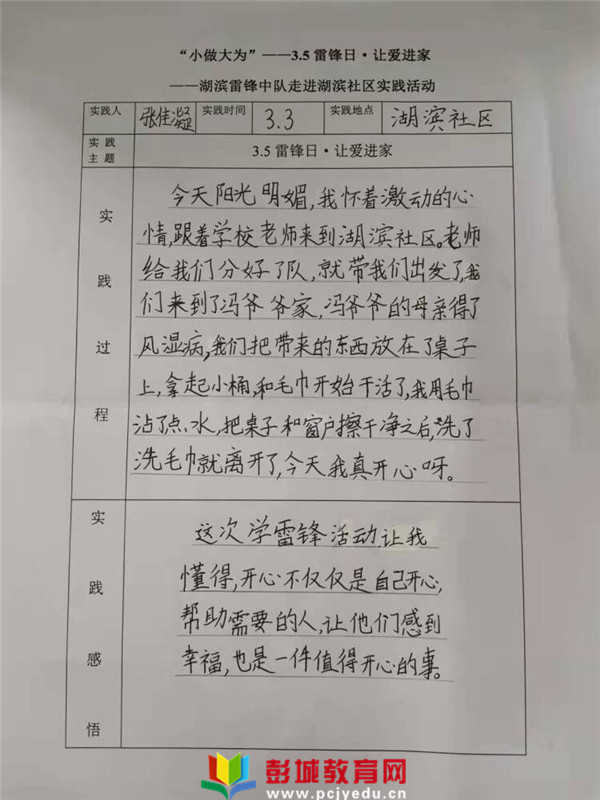 “小做大为”——3.5雷锋日·让爱进家
——湖滨雷锋中队走进湖滨社区实践活动
实践人 张佳凝 实践时间 3.3 实践地点 湖滨社区
实践主题 3.5雷锋日·让爱进家
实践过程
今天阳光明媚,我怀着激动的心
情,跟着学校老师来到湖滨社区。老师
给我们分好了队,就带我们出发了,我
们来到了冯爷爷家,冯爷爷的母亲得了
风湿病,我们把带来的东西放在了桌子
上,拿起小桶,和毛巾开始干活了,我用毛巾
沾了点水,把桌子和窗户擦干净之后,洗了
洗毛巾就离开了,今天我真开心呀。
实践感悟
这次学雷锋活动,让我
懂得,开心不仅仅是自己开心,
帮助需要的人,让他们感到
幸福,也是一件值得开心的事。
彭城教育网
www.pcjyedu.cn